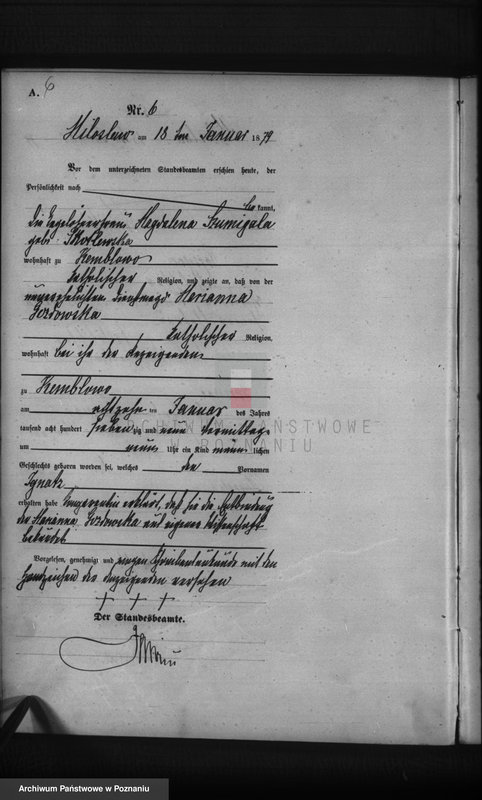 A. 6
Nr. 6
Miloslaw am 18 ten Januar 1879
Vor dem unterzeichneten Standesbeamten erschien heute, der
Persönlichkeit nach
bekannt,
die Tagelöhnerfrau Magdalena Szumigala
geb.
wohnhaft zu Kemblowo
katholischer Religion, und zeigte an, daß von der
unverehelichten Dienstmagd Marianna
katholischer Religion,
wohnhaft bei ihr der Anzeigenden
zu Kemblowo
am achtzehn ten Januar des Jahres
tausend acht hundert siebenzig und neun Vormittags
um neun Uhr ein Kind männlichen
Geschlechts geboren worden sei, welches den Vornamen
Ignatz
erhalten habe
der Marianna aus eigener Wissenschaft
bekundet
Vorgelesen, genehmigt und wegen Schreibensunkunde mit den
Handzeichen der Anzeigenden versehen
+ + +
Der Standesbeamte.
ARCHIWUM PAŃSTWOWE
W POZNANIU
Archiwum Państwowe w Poznaniu